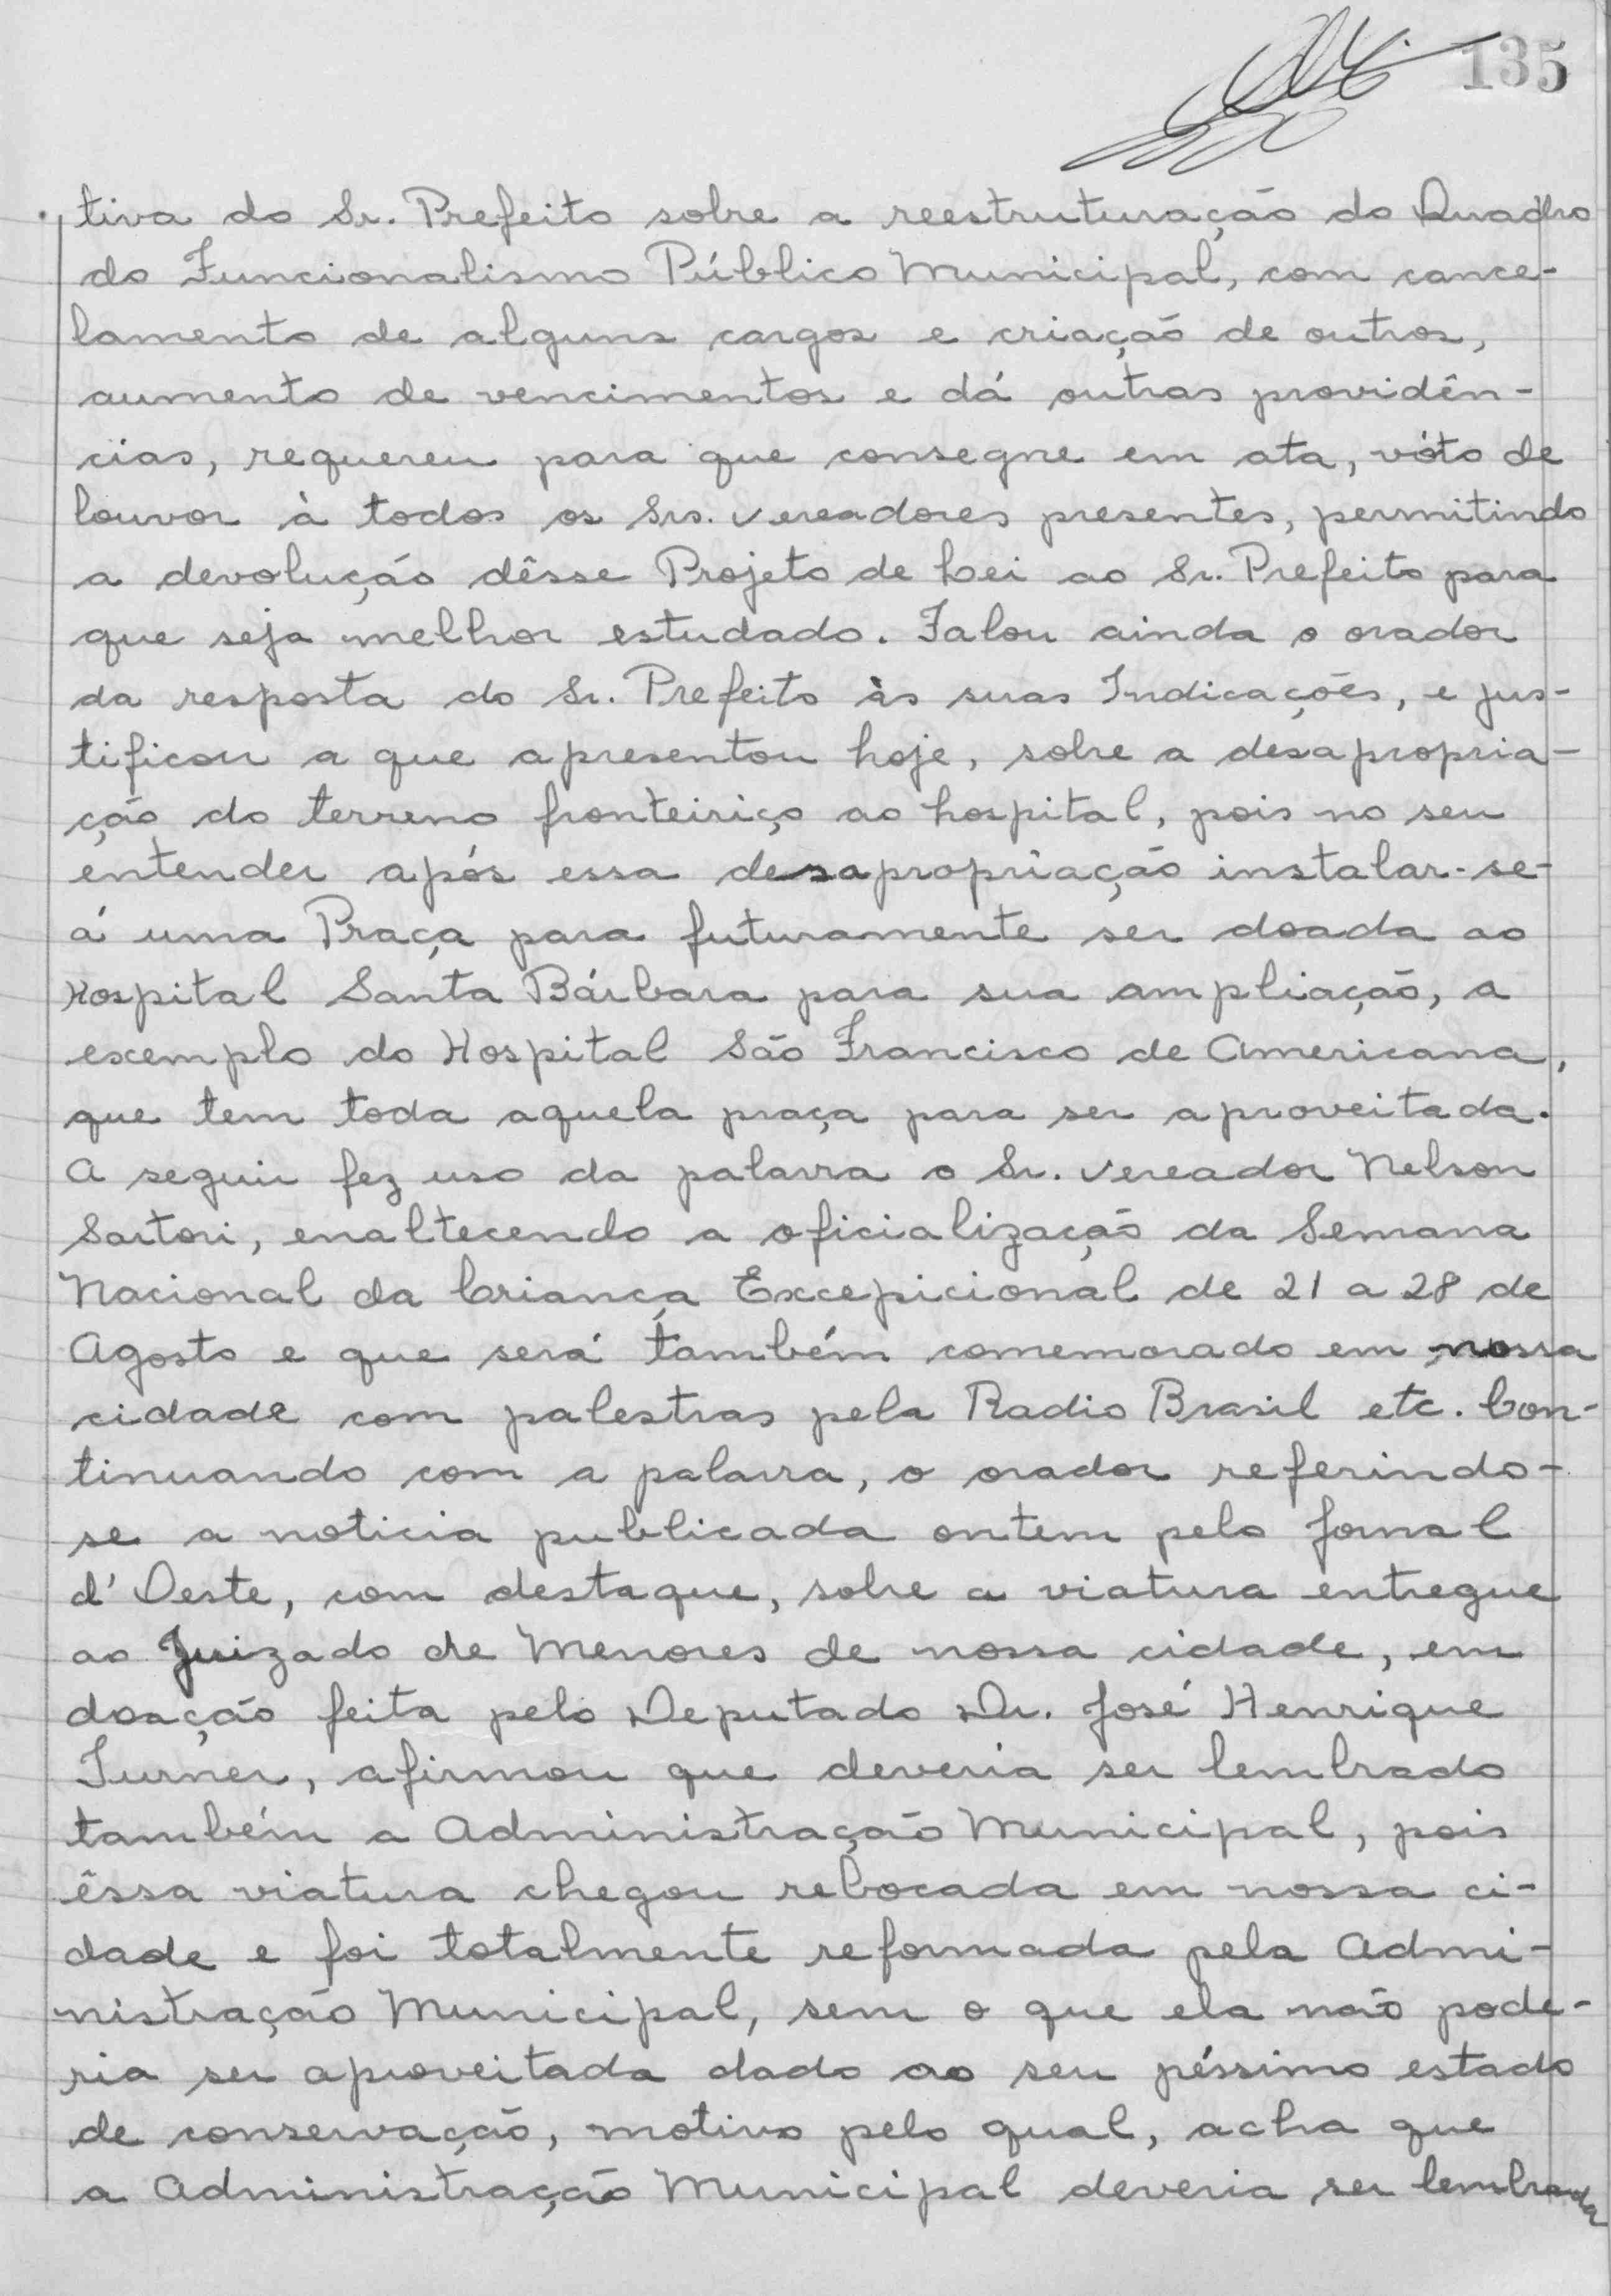 135
tiva do Sr. Prefeito sobre a reestruturação do Quadro
do Funcionalismo Público Municipal, com cance-
lamento de alguns cargos e criação de outros,
aumento de vencimentos e dá outras providên-
cias, requereu para que consegne em ata, vóto de
louvor à todos os Srs. vereadores presentes, permitindo
a devolução dêsse Projeto de Lei ao Sr. Prefeito para
que seja melhor estudado. Falou ainda o orador
da resposta do Sr. Prefeito às suas Indicações, e jus-
tificou a que apresentou hoje, sobre a desapropria-
ção do terreno fronteiriço ao hospital, pois no seu
entender após essa desapropriação instalar-se-
á uma Praça para futuramente ser doada ao
Hospital Santa Bárbara para sua ampliação, a
exemplo do Hospital São Francisco de Americana,
que tem toda aquela praça para ser aproveitada.
A seguir fez uso da palavra o Sr. vereador Nelson
Sartori, enaltecendo a oficialização da Semana
Nacional da Criança Excepicional de 21 a 28 de
Agosto e que será também comemorado em nossa
cidade com palestras pela Radio Brasil etc. Con-
tinuando com a palavra, o orador referindo-
se a noticia publicada ontem pelo Jornal
d'Oeste, com destaque, sobre a viatura entregue
ao Juizado de Menores de nossa cidade, em
doação feita pelo Deputado Dr. José Henrique
Turner, afirmou que deveria ser lembrado
também a Administração Municipal, pois
êssa viatura chegou rebocada em nossa ci-
dade e foi totalmente reformada pela Admi-
nistração Municipal, sem o que ela não pode-
ria ser aproveitada dado ao seu péssimo estado
de conservação, motivo pelo qual, acha que
a Administração Municipal deveria ser lembrada